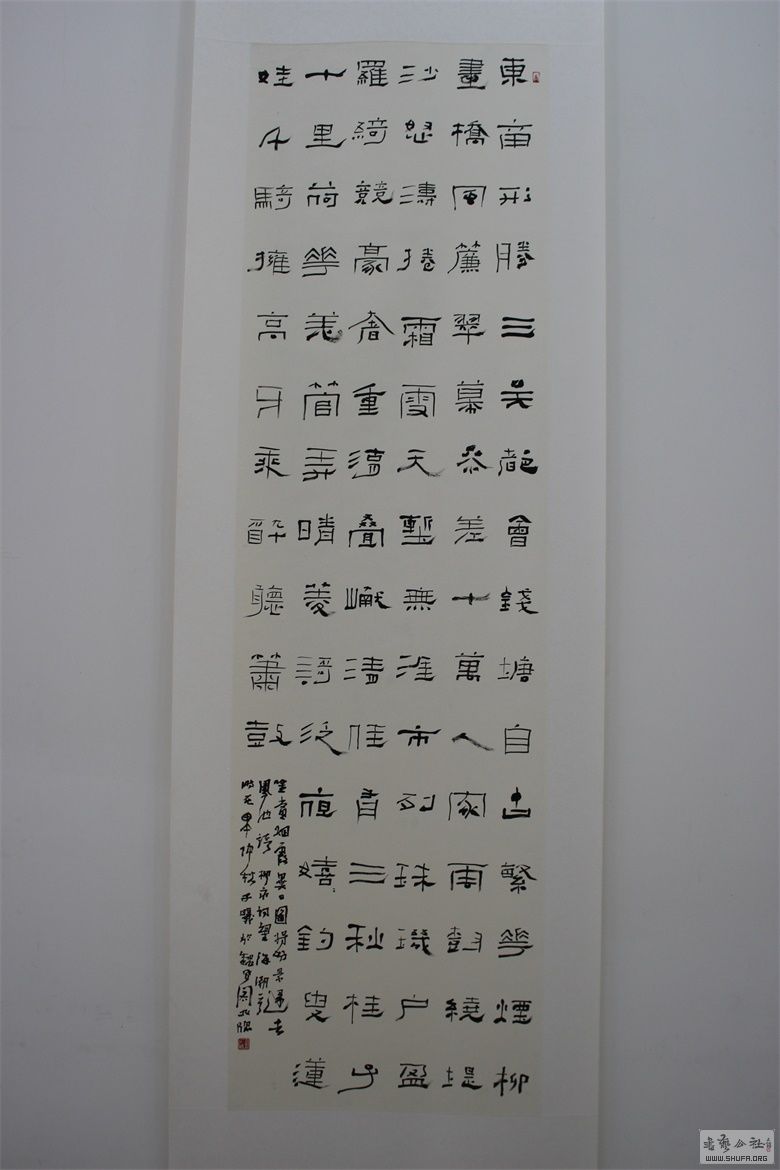 東南形勝三吴都會錢塘自古繁華煙柳
畫橋風簾翠幕參差十萬人家雲樹繞堤
沙怒濤捲霜雪天塹無涯市列珠璣户盈
羅綺競豪奢重湖疊巘清佳有三秋桂子
十里荷華羌管弄晴菱歌泛夜嬉釣叟蓮
娃千騎擁高牙乘醉聽簫鼓
吟賞烟霞異日圖將好景歸去
鳳池誇 柳永詞望海潮
歲在甲申仲秋
WWW.SHUFA.ORG